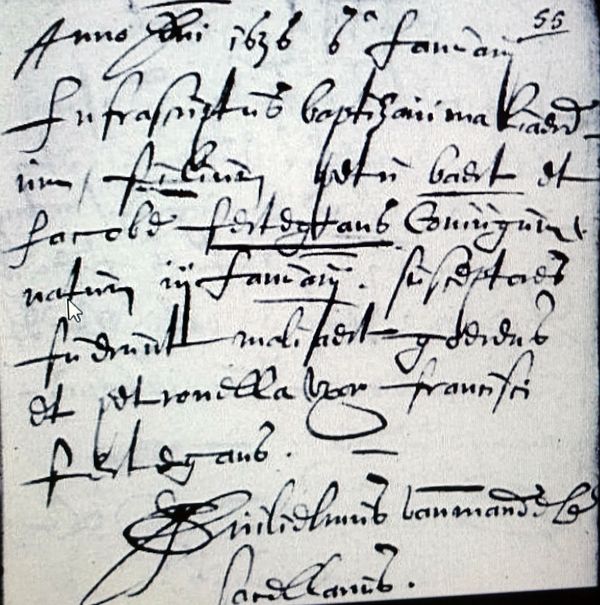 55
Anno Dni 1636 6ᵃ Januarij
Infrascriptus baptizavi maliaerd
um filium petri baert et
Jacobe fertegans Coniugum
natum iij Januarij. susceptores
fuerunt maliaert goedens
et petronella uxor francisci
fertegans.
Guilielmus
sacellanus.